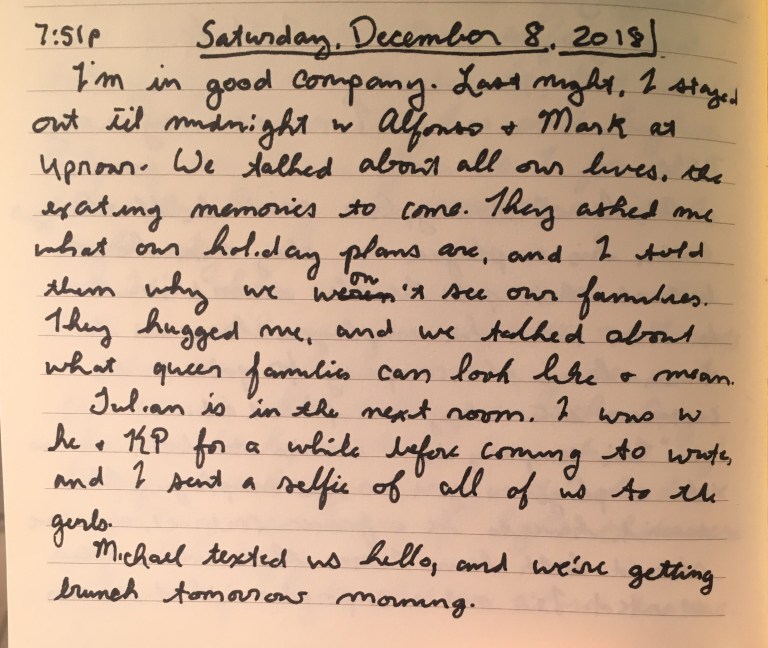 7:51p Saturday, December 8, 2018
I'm in good company. Last night, I stayed
out til midnight w Alfonso + Mark at
Uproar. We talked about all our lives, the
exciting memories to come. They asked me
what our holiday plans are, and I told
them why we won't see our families.
They hugged me, and we talked about
what queer families can look like & mean.
Julian is in the next room. I was w
he & KP for a while before coming to write,
and I sent a selfie of all of us to the
girls.
Michael texted us hello, and we're getting
brunch tomorrow morning.